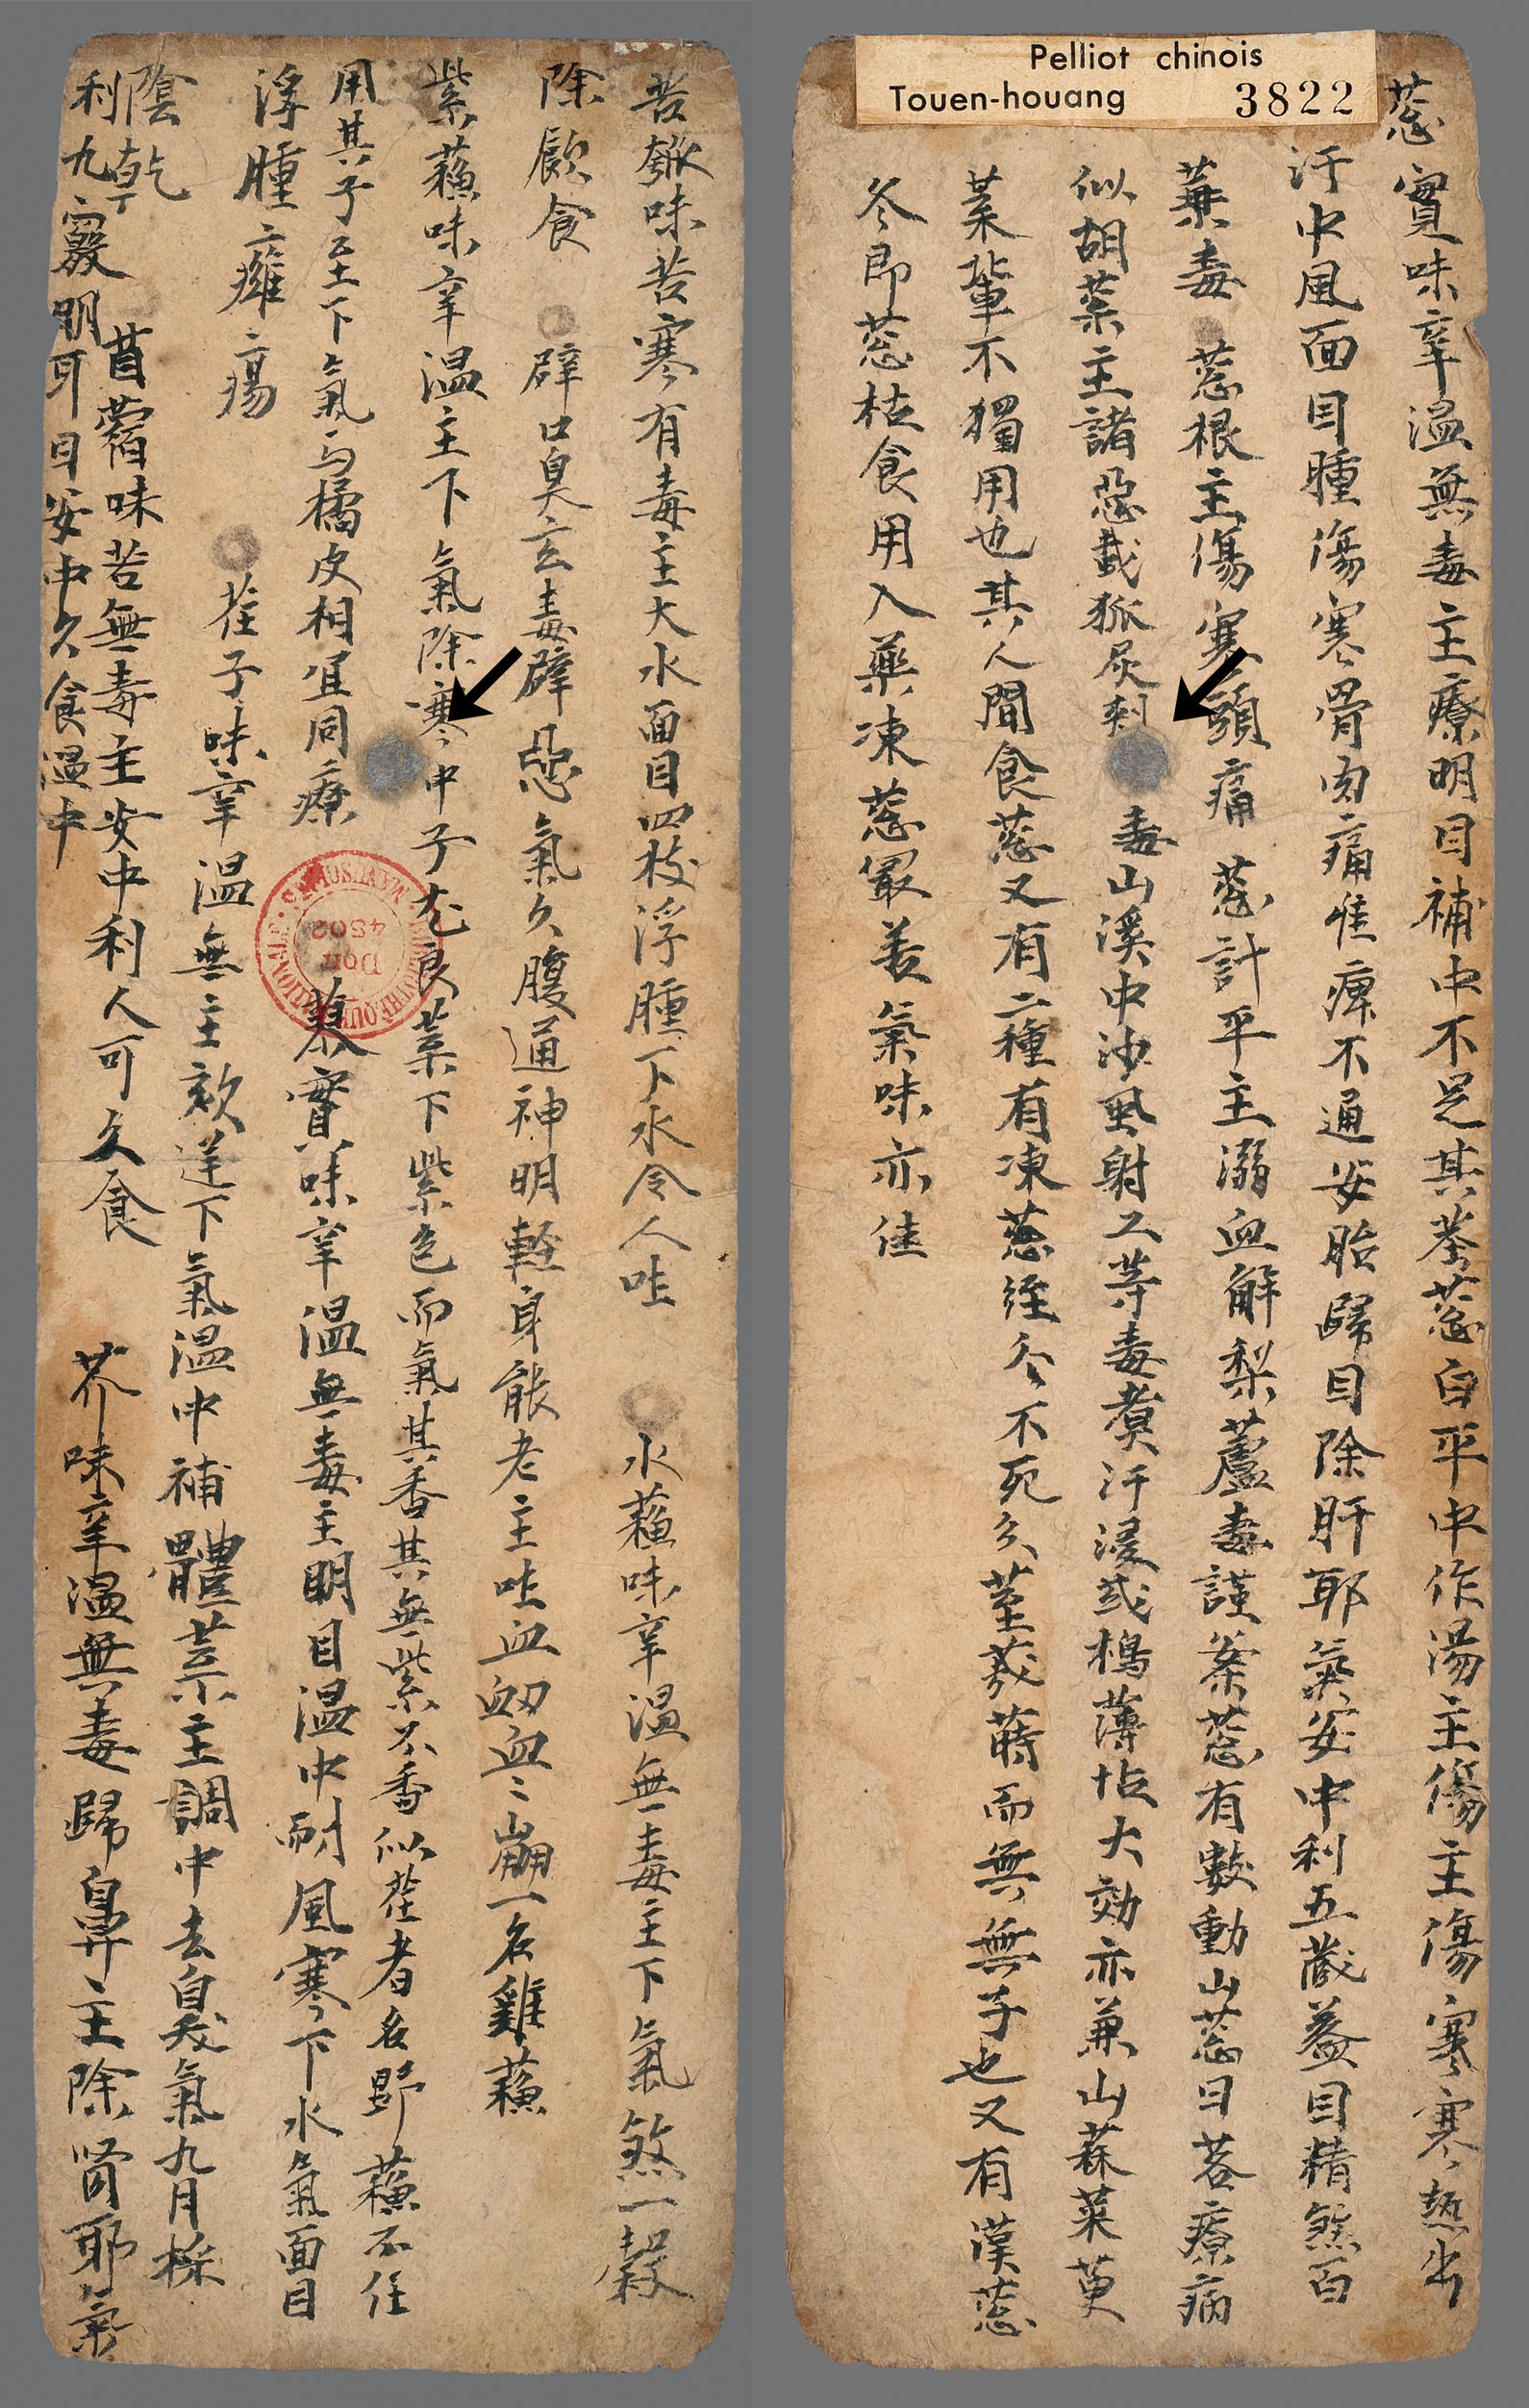 Pelliot chinois
Touen-houang 3822
葱實味辛溫無毒主療明目補中不足其莖葱白平中作湯主傷主傷寒寒熱出
汗中風面目腫傷寒骨肉痛惟痺不通安胎歸目除肝耶氣安中利五藏益目精煞百
藥毒 葱根主傷寒頭痛 葱計平主溺血解梨蘆毒謹案葱有數動山葱曰茖療病
似胡菜主諸惡載狐尿刺毒山溪中沙虱射工等毒煮汁浸或搗薄怗大効亦兼山蒜菜萸
菜輩不獨用也其人間食葱又有二種有凍葱經冬不死久莖美蒔而無無子也又有漢葱
冬即葱枯食用入藥凍葱最善氣味亦佳
苦瓠味苦寒有毒主大水面目四枝浮腫下水令人吐 水蘇味辛溫無毒主下氣煞一穀
除飲食 辟口臭去毒辟惡氣久腹通神明輕身能老主吐血衂血〻崩一名雞蘇
紫蘇味辛溫主下氣除寒中子尤良菜下紫色而氣其香其無紫不香似荏者名野蘇不任
用其子主下氣与橘皮相宜同療 蓼實味辛溫無毒主明目溫中耐風寒下水氣面目
浮腫癰瘍 荏子味辛溫無主欬逆下氣溫中補體菜主調中去臭氣九月採
陰乾 苜蓿味苦無毒主安中利人可久食 芥味辛溫無毒歸鼻主除腎耶氣
利九竅明耳目安中久食溫中
Don
4502